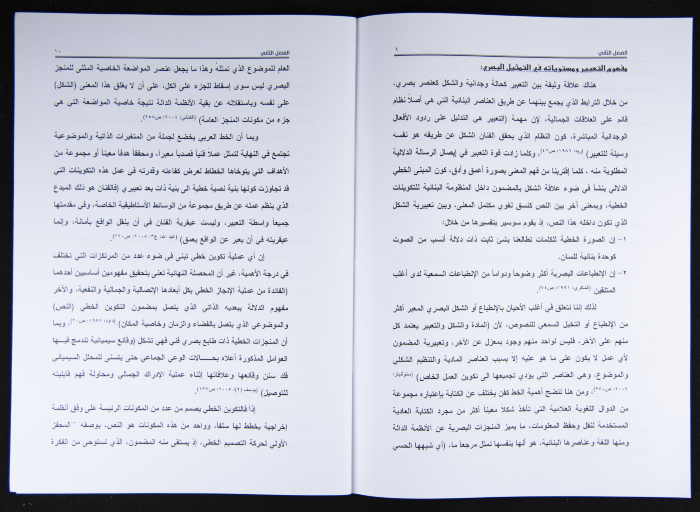 الفصل الثاني
٩
مفهوم التعبير ومستوياته في التمثيل البصري:
هناك علاقة وثيقة بين التعبير كحالة وجدانية والشكل كعنصر بصري،
من خلال الترابط الذي يجمع بينهما عن طريق العناصر البنائية التي هي أصلاً نظام
قائم على العلاقات الجمالية، لإن مهمة (التعبير هي التدليل على ردود الأفعال
الوجدانية المباشرة، كون النظام الذي يحقق الفنان الشكل عن طريقه هو نفسه
وسيلة للتعبير) (ريد، ١٩٨٦، ص٤٦). وكلما زادت قوة التعبير في إيصال الرسالة الدلالية
المطلوبة منه ، كلما إقتربنا من فهم المعنى بصورة أعمق وأدق، كون المبنى الخطي
الدلالي ينشأ في ضوء علاقة الشكل بالمضمون داخل المنظومة البنائية للتكوينات
الخطية، وبمعنى آخر بين النص كنسق لغوي مكتمل المعنى، وبين تعبيرية الشكل
الذي تكون داخله هذا النص، إذ يقوم سوسير بتفسيرها من خلال:
١- إن الصورة الخطية للكلمات تطالعنا بشئ ثابت ذات دلالة أنسب من الصوت
كوحدة بنائية للسان.
٢- إن الإنطباعات البصرية أكثر وضوحاً ودواما من الإنطباعات السمعية لدى أغلب
المتلقين
لذلك إننا نتعلق في أغلب الأحيان بالإنطباع أو الشكل البصري المعبر أكثر
من الإنطباع أو التخيل السمعي للنصوص، لأن (المادة والشكل والتعبير يعتمد كل
منهم على الآخر، فليس لواحد منهم وجود بمعزل عن الآخر، وتعبيرية المضمون
لأي عمل لا يكون على ما هو عليه إلا بسبب العناصر المادية والتنظيم الشكلي
والموضوع، وهي العناصر التي يؤدي تجميعها الى تكوين العمل الخاص)
ومن هنا تتضح أهمية الخط كفن يختلف عن الكتابة بإعتباره مجموعة
من الدوال اللغوية العلامية التي تأخذ شكلا معيناً أكثر من مجرد الكتابة العادية
المستخدمة لنقل وحفظ المعلومات، ما يميز المنجزات البصرية عن الأنظمة الدالة
ومنها اللغة وعناصرها البنائية، هو أنها بنفسها تمثل مرجعاً ما، (أي شبهها الحسي
الفصل الثاني
١٠
العام للموضوع الذي تمثله وهذا ما يجعل عنصر المواضعة الخاصية المثلى للمنجز
البصري ليس سوى إسقاط للجزء على الكل، على أن لا يغلق هذا المعنى (الشكل)
على نفسه وباستقلاله عن بقية الأنظمة الدالة نتيجة خاصية المواضعة التي هي
جزء من مكونات المنجز العامة)
وبما أن الخط العربي يخضع لجملة من المتغيرات الذاتية والموضوعية
تجتمع في النهاية لتمثل عملا فنياً قصدياً معبراً، ومحققاً هدفاً معيناً أو مجموعة من
الأهداف التي يتوخاها الخطاط لعرض كفاءته وقدرته في عمل هذه التكوينات التي
قد تجاوزت كونها بنية نصية خطية الى بنية ذات بعد تعبيري (فالفنان هو ذلك المبدع
الذي ينظم عمله عن طريق مجموعة من الوسائط الأستاطيقية الخاصة، وفي مقدمتها
جميعاً واسطة التعبير، وليست عبقرية الفنان في أن ينقل الواقع بأمانة، وإنما
عبقريته في أن يعبر عن الواقع بعمق)
إن أي عملية تكوين خطي تبنى في ضوء عدد من المرتكزات التي تختلف
في درجة الأهمية، غير أن المحصلة النهائية تعنى بتحقيق مفهومين أساسيين أحدهما
(الفائدة من عملية الإنجاز الخطي بكل أبعادها الإتصالية والجمالية والنفعية، والآخر
مفهوم الدلالة ببعديه الذاتي الذي يتصل بمضمون التكوين الخطي (النص)
والموضوعي الذي يتصل بالفضاء والزمان وخاصية المكان) وبما
أن المنجزات الخطية ذات طابع بصري فني فهي تشكل (وقائع سيميائية تندمج فيها
العوامل المذكورة أعلاه بحسالات الوعي الجماعي حتى يتسنى للمحلل السيميائي
فك سنن وقائعها وعلاقاتها إثناء عملية الإدراك الجمالي ومحاولة فهم قابليته
للتوصيل)
إذا فالتكوين الخطي يصمم من عدد من المكونات الرئيسة على وفق أنظمة
إخراجية يخطط لها سلفاً، وواحد من هذه المكونات هو النص، بوصفه المحفز
الأولي لحركة التصميم الخطي، إذ يستقى منه المضمون، الذي تستوحى من الفكرة